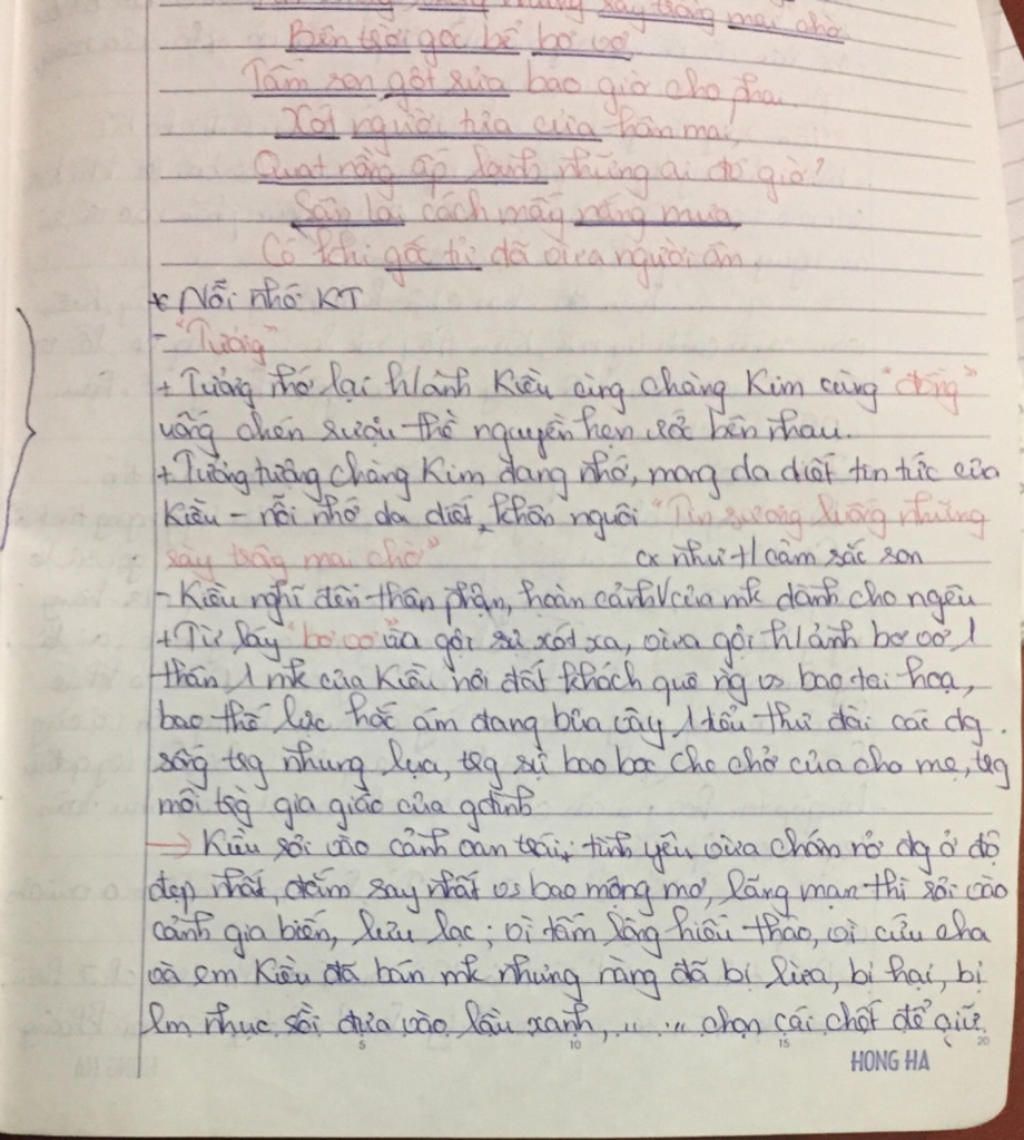 Tin sương luống những rày trông mai chờ
Bên trời góc bể bơ vơ
Tấm son gột rửa bao giờ cho phai
Xót người tựa cửa hôm mai,
Quạt nồng ấp lạnh những ai đó giờ?
Sân lai cách mấy nắng mưa,
Có khi gốc tử đã vừa người ôm
* Nỗi nhớ KT
- "Tưởng"
+ Tưởng nhớ lại h/ảnh Kiều cùng chàng Kim cùng "đồng"
uống chén rượu thề nguyền hẹn ước bên nhau.
+ Tưởng tượng chàng Kim đang nhớ, mong da diết tin tức của
Kiều - nỗi nhớ da diết, khôn nguôi "Tin sương luống những
rày trông mai chờ"
cx như t/cảm sắc son
- Kiều nghĩ đến thân phận, hoàn cảnh/của mk dành cho ngêu
+ Từ láy "bơ vơ" vừa gợi sự xót xa, vừa gợi h/ảnh bơ vơ 1
thân 1 mk của Kiều nơi đất khách quê ng vs bao tai hoạ,
bao thế lực hắc ám đang bủa vây 1 tiểu thư đài các đg
sống trg nhung lụa, trg sự bao bọc che chở của cha mẹ, trg
môi trg gia giáo của gđình
→ Kiều rơi vào cảnh oan trái, tình yêu vừa chớm nở đg ở độ
đẹp nhất, đắm say nhất vs bao mộng mơ, lãng mạn thì rơi vào
cảnh gia biến, lưu lạc; vì tấm lòng hiếu thảo, vì cứu cha
và em Kiều đã bán mk nhưng nàng đã bị lừa, bị hại, bị
lm nhục rồi đưa vào lầu xanh, ..... chọn cái chết để giữ
5 10 15 20
HONG HA